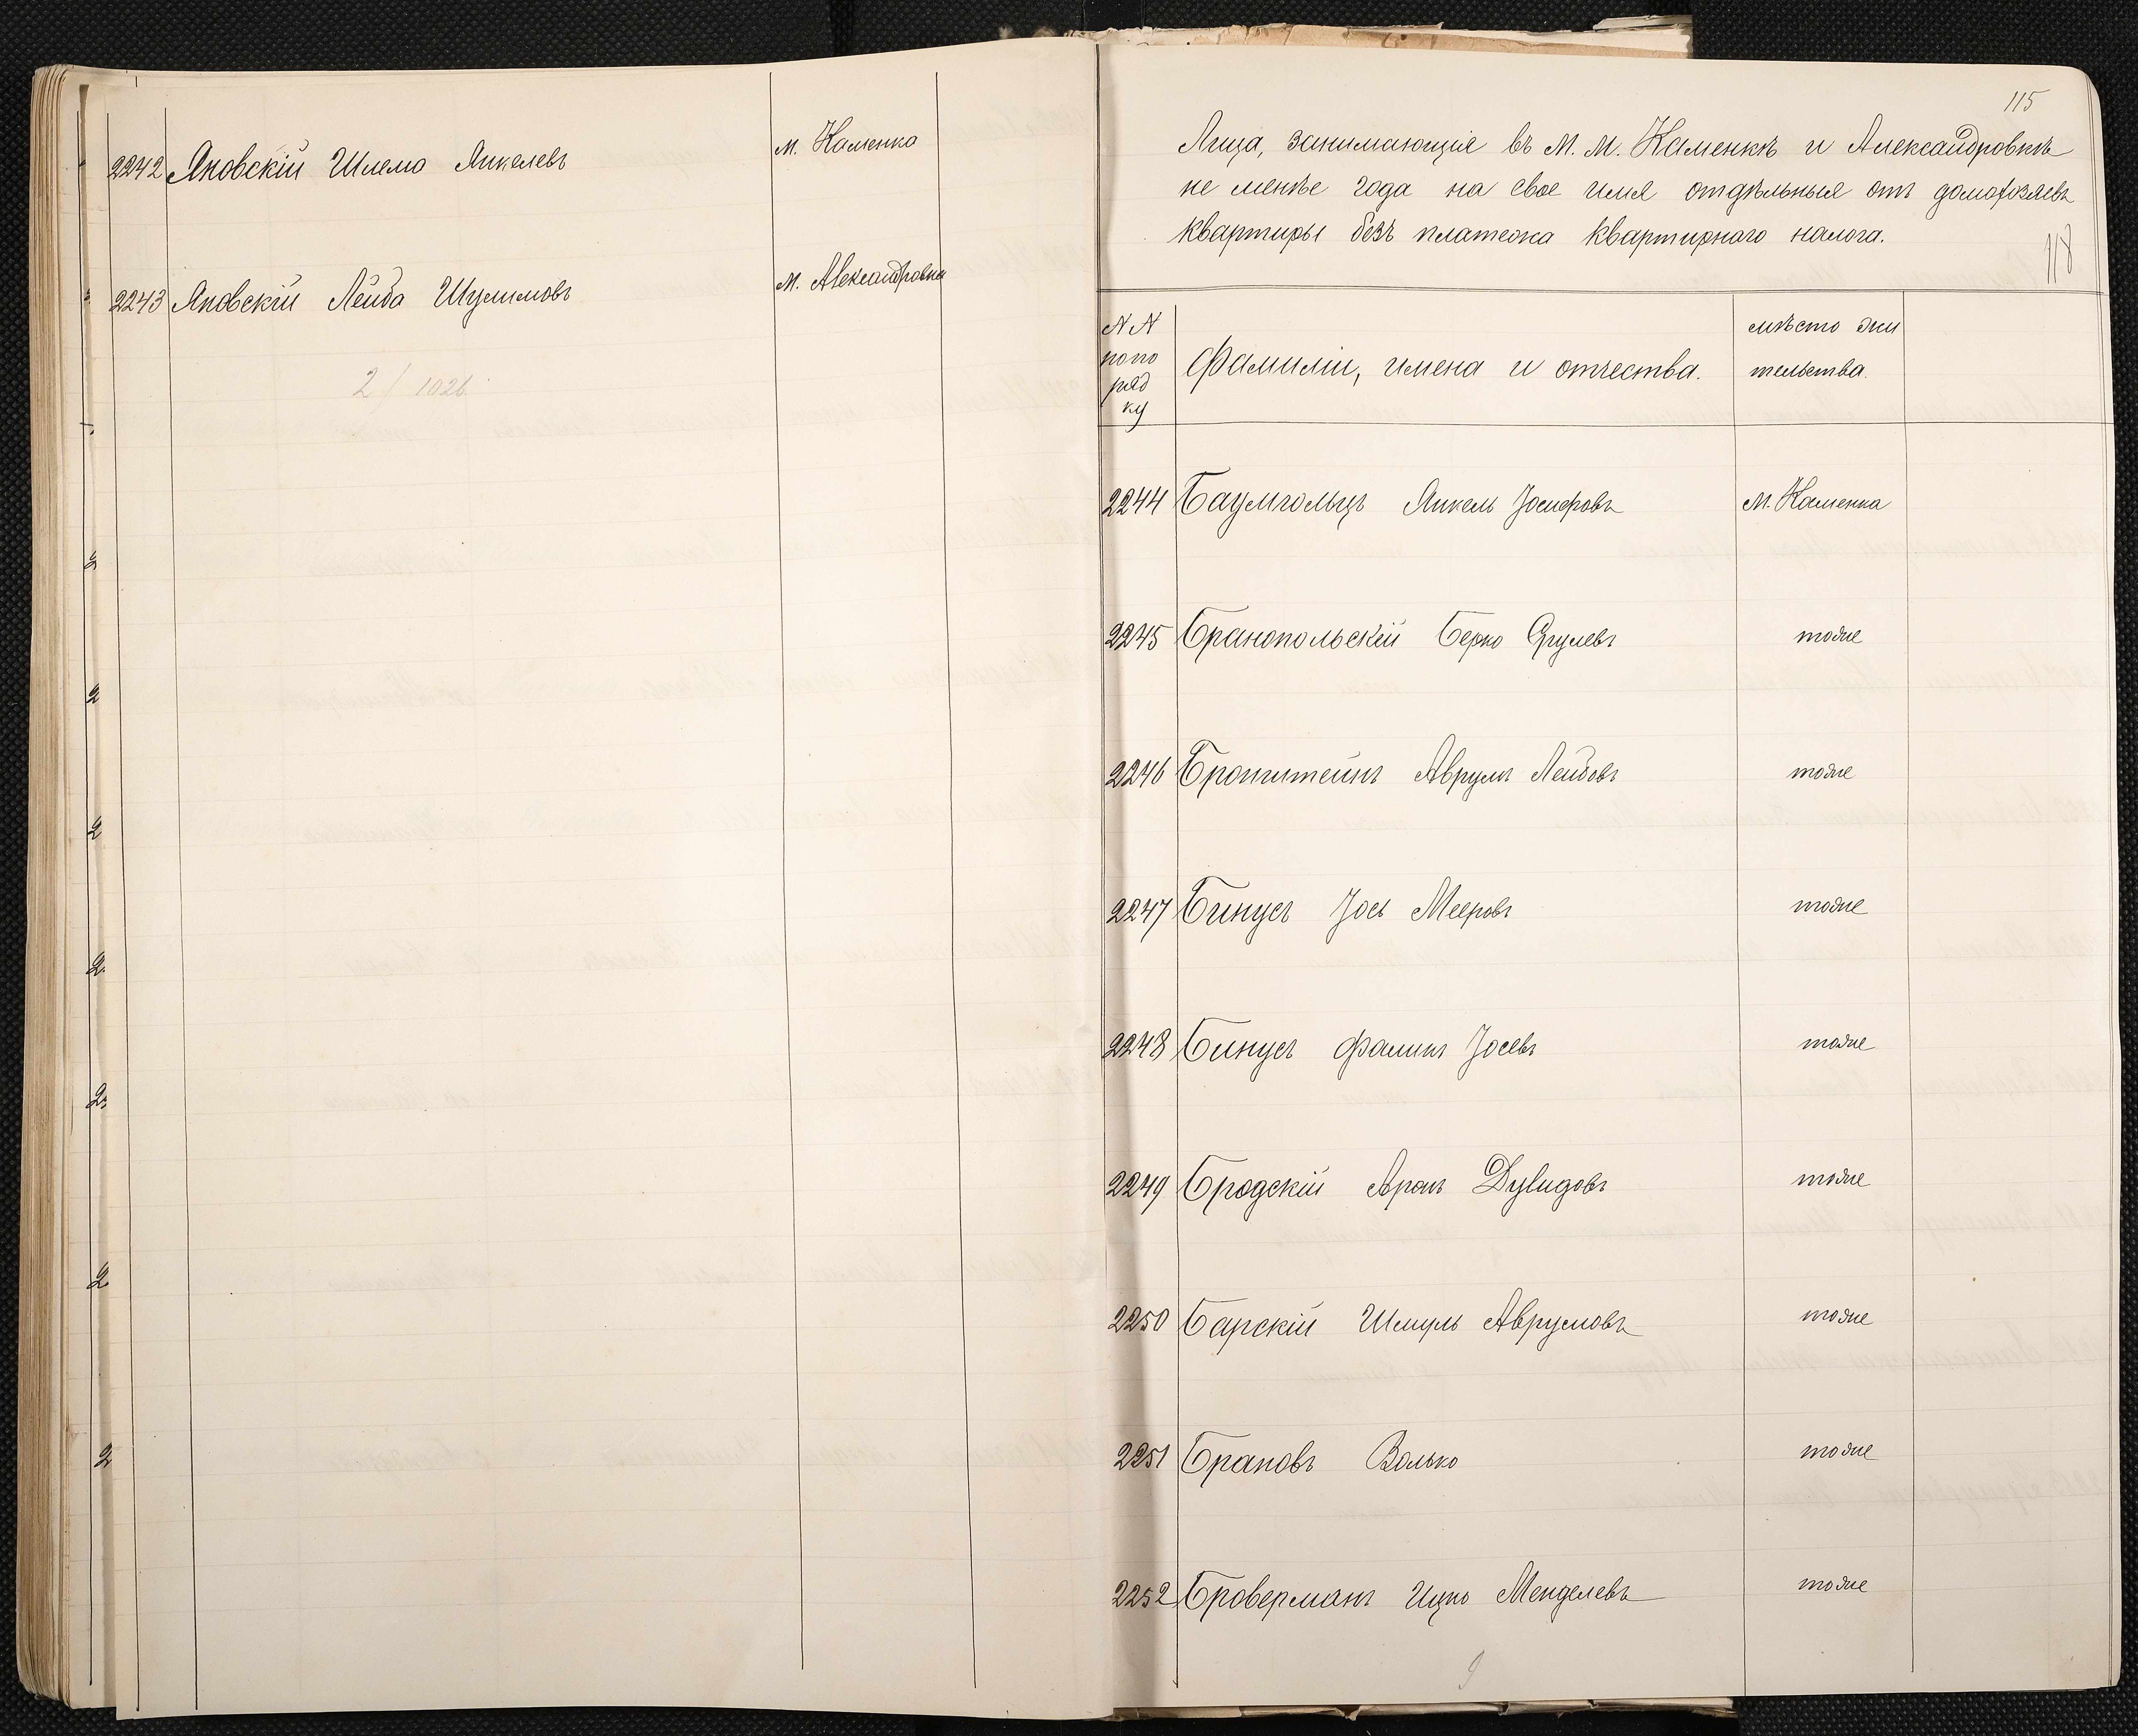 2242 Яновскій Шлема Янкелевъ м. Каменка
2243 Яновскій Лейба Шулимовъ м. Александровка
2/1026
115
Лица, занимающія въ м. м. Каменкѣ и Александровкѣ
не менѣе года на свое имя отдѣльныя отъ домохозяевъ
квартиры безъ платежа квартирнаго налога.
118
№№ по поряд ку
Фамиліи, имена и отчества.
мѣсто жи
тельства.
2244 Баумгольцъ Янкель Іосифовъ м. Каменка
2245 Бранопольскій Берко Срулевъ тоже
2246 Бронштейнъ Аврумъ Лейбовъ тоже
2247 Бинусъ Іось Мееровъ тоже
2248 Бинусъ Фалик Іосевъ тоже
2249 Бродскій Аронъ Дувидовъ тоже
2250 Барскій Шмуль Аврумовъ тоже
2251 Брановъ Волько тоже
2252 Броверманъ Ицко Менделевъ тоже
9